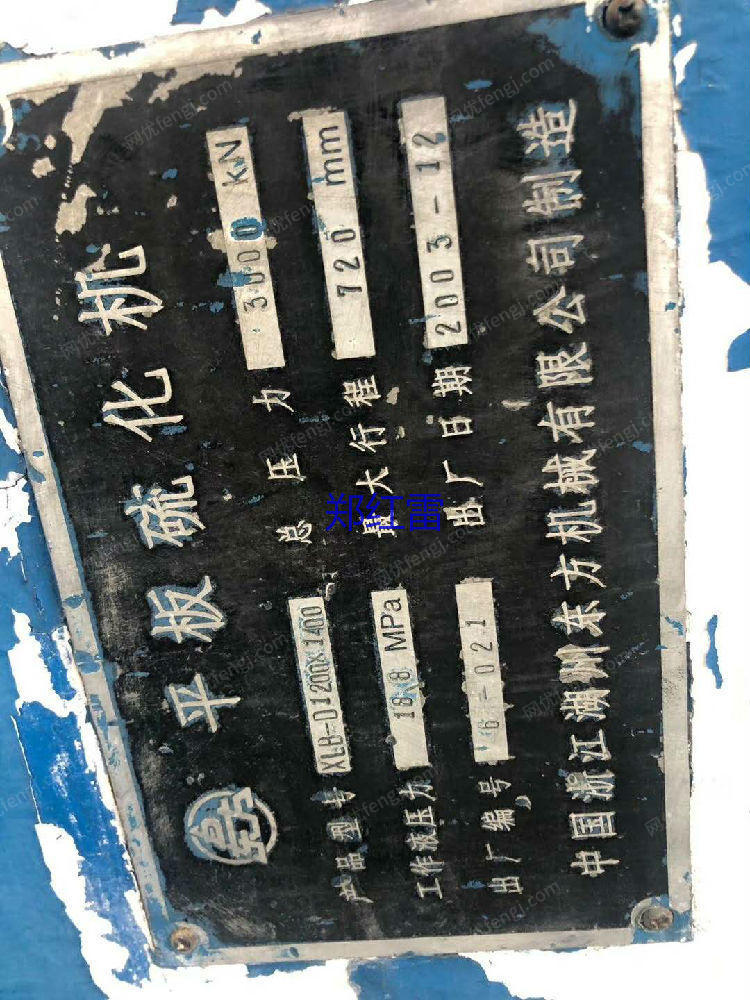 平板硫化机
产品型号 XLB-D1200X1400 总压力 3000 kN
工作液压力 18.8 MPa 最大行程 720 mm
出厂编号 6-021 出厂日期 2003-12
中国浙江湖州东方机械有限公司制造
郑红雷